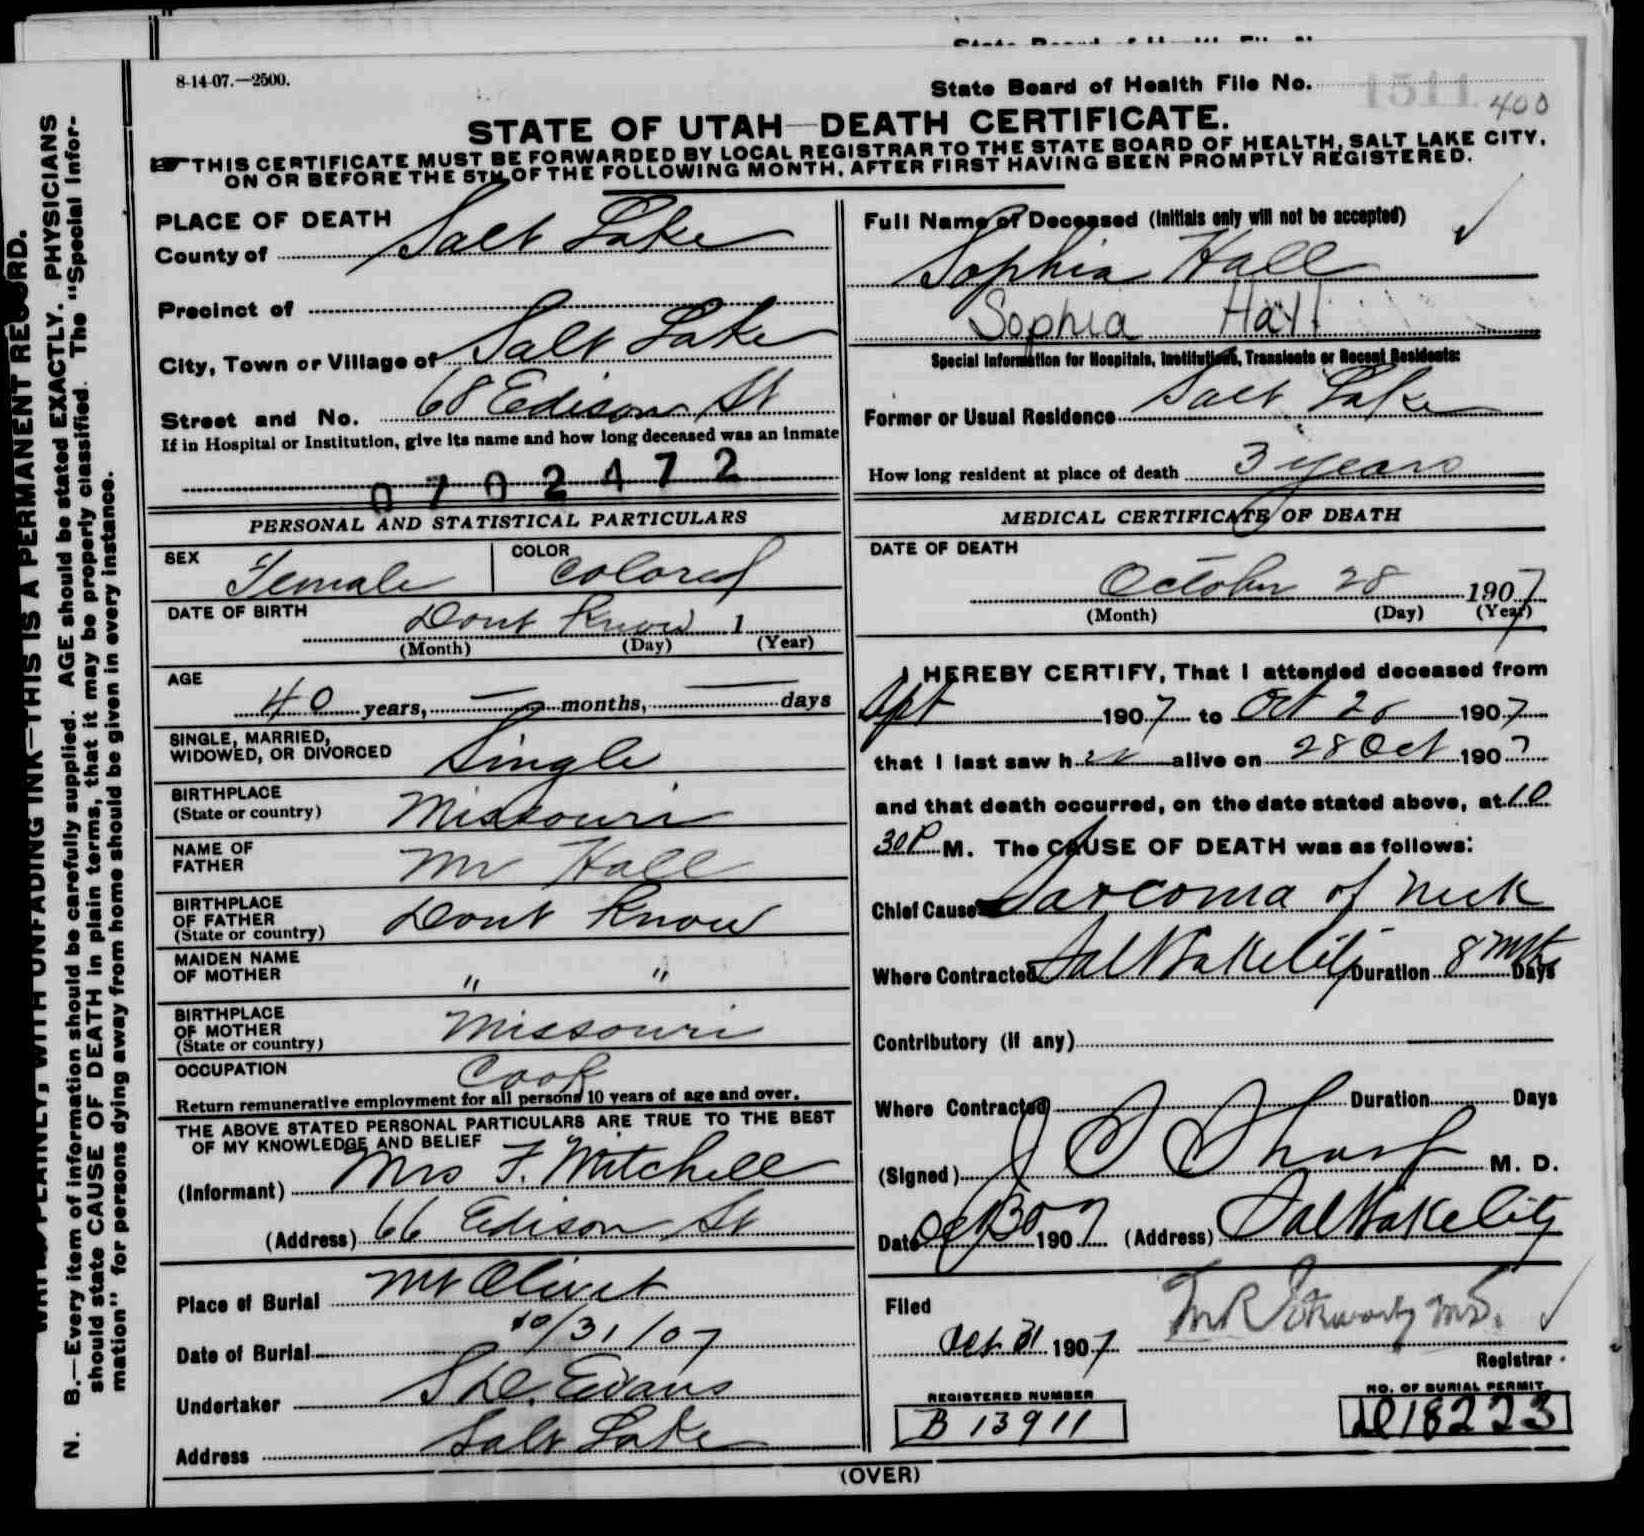 8-14-07.—2500.
State Board of Health File No. 1511
400
STATE OF UTAH—DEATH CERTIFICATE.
THIS CERTIFICATE MUST BE FORWARDED BY LOCAL REGISTRAR TO THE STATE BOARD OF HEALTH, SALT LAKE CITY,
ON OR BEFORE THE 5TH OF THE FOLLOWING MONTH, AFTER FIRST HAVING BEEN PROMPTLY REGISTERED.
WITH UNFADING INK—THIS IS A PERMANENT RECORD.
N. B.—Every item of information should be carefully supplied. AGE should be stated EXACTLY. PHYSICIANS
should state CAUSE OF DEATH in plain terms, that it may be properly classified. The "Special Infor-
mation" for persons dying away from home should be given in every instance.
PLACE OF DEATH
County of Salt Lake
Precinct of
City, Town or Village of Salt Lake
Street and No. 68 Edison St
If in Hospital or Institution, give its name and how long deceased was an inmate
0702472
PERSONAL AND STATISTICAL PARTICULARS
SEX Female COLOR Colored
DATE OF BIRTH Dont Know 1
(Month) (Day) (Year)
AGE
40 years, — months, — days
SINGLE, MARRIED,
WIDOWED, OR DIVORCED Single
BIRTHPLACE
(State or country) Missouri
NAME OF
FATHER Mr Hall
BIRTHPLACE
OF FATHER
(State or country) Dont Know
MAIDEN NAME
OF MOTHER " "
BIRTHPLACE
OF MOTHER
(State or country) Missouri
OCCUPATION Cook
Return remunerative employment for all persons 10 years of age and over.
THE ABOVE STATED PERSONAL PARTICULARS ARE TRUE TO THE BEST
OF MY KNOWLEDGE AND BELIEF
(Informant) Mrs F. Mitchell
(Address) 66 Edison St
Place of Burial Mt Olivet
Date of Burial 10/31/07
Undertaker Evans
Address Salt Lake
Full Name of Deceased (Initials only will not be accepted)
Sophia Hall
Sophia Hall
Special Information for Hospitals, Institutions, Transients or Recent Residents:
Former or Usual Residence Salt Lake
How long resident at place of death 3 years
MEDICAL CERTIFICATE OF DEATH
DATE OF DEATH
October 28 1907
(Month) (Day) (Year)
I HEREBY CERTIFY, That I attended deceased from
1907 to Oct 28 1907
that I last saw her alive on 28 Oct 1907
and that death occurred, on the date stated above, at 10
30 P M. The CAUSE OF DEATH was as follows:
Chief Cause Sarcoma of Neck
Where Contracted Salt Lake City Duration 8 Mths Days
Contributory (if any)
Where Contracted Duration Days
(Signed) J Sharp M. D.
Date Oct 30 1907 (Address) Salt Lake City
Filed
Oct 31 1907
Registrar
REGISTERED NUMBER
B 13911
NO. OF BURIAL PERMIT
18223
(OVER)